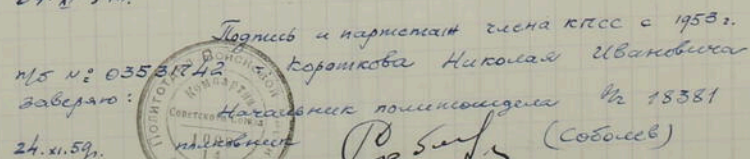 Подпись и партстаж члена КПСС с 1953 г.
п/б № 03531742 - Короткова Николая Ивановича
заверяю:
Начальник политотдела в/ч 18381
24.XI.59г. полковник (Соболев)
Компартия
Советского Союза